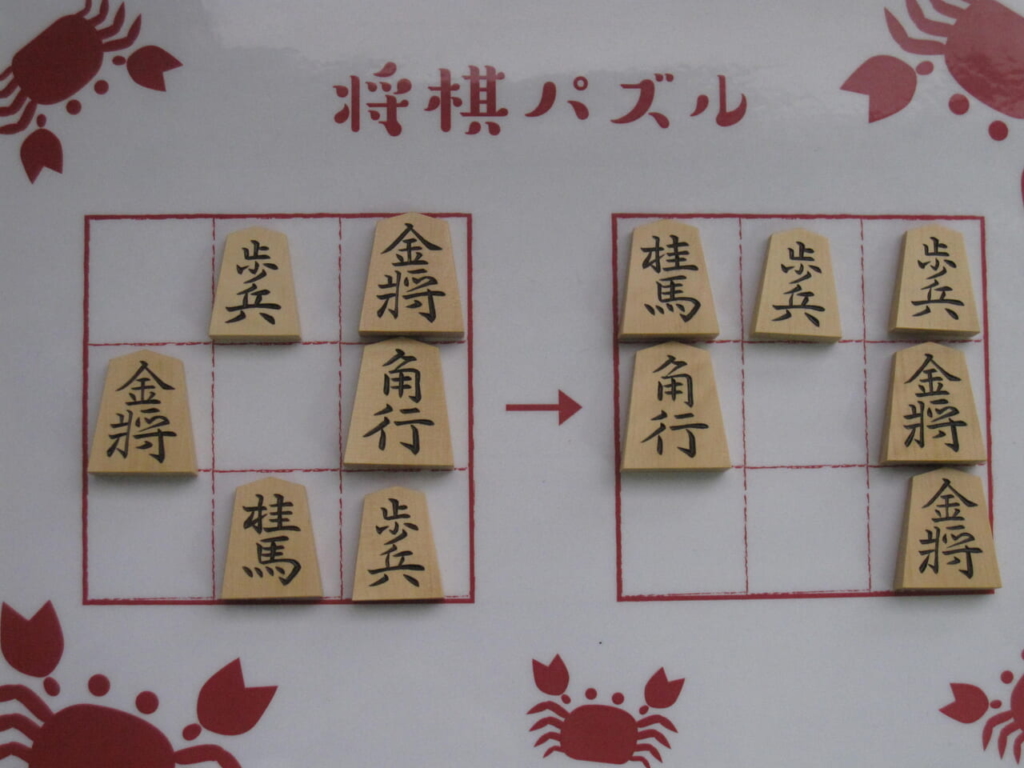 将棋パズル
歩兵 金将 桂馬 歩兵 歩兵
金将 角行 角行 金将
桂馬 歩兵 金将